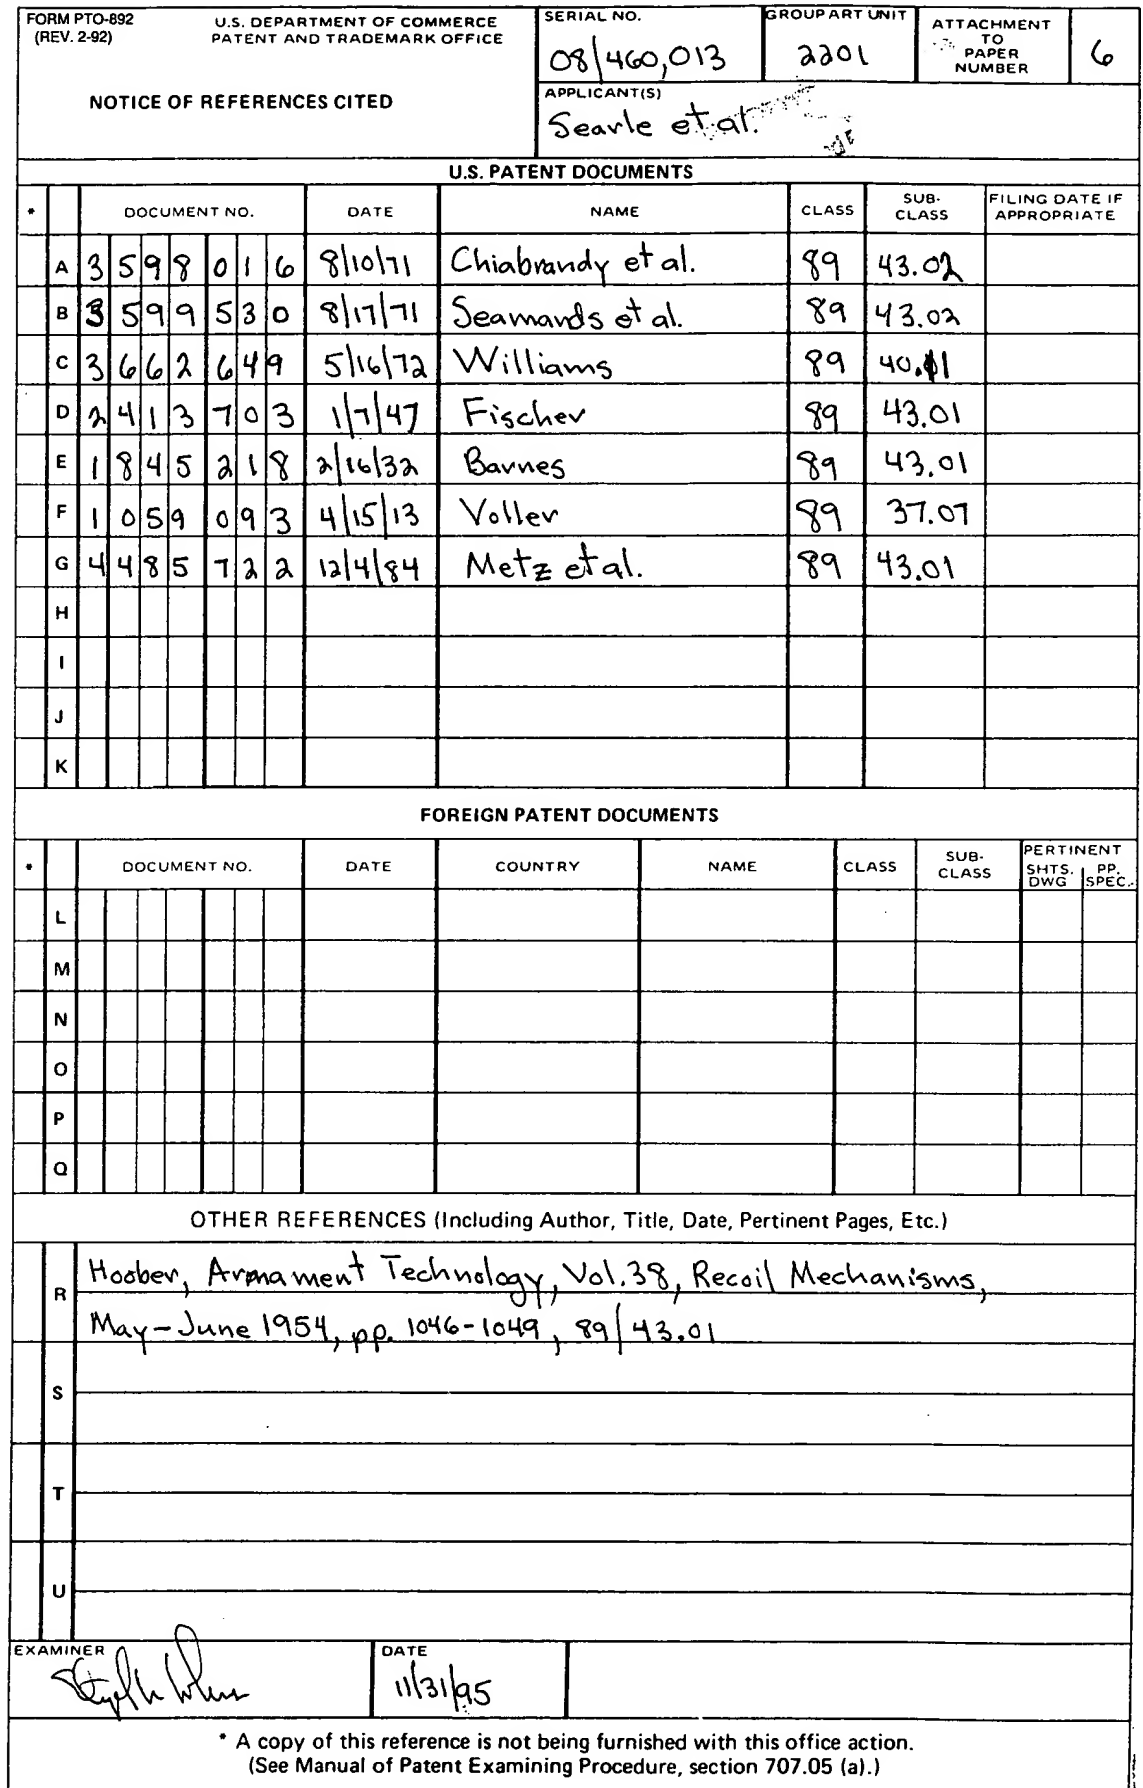 FORM PTO-892
(REV. 2-92)
U.S. DEPARTMENT OF COMMERCE
PATENT AND TRADEMARK OFFICE
NOTICE OF REFERENCES CITED
SERIAL NO.
08/460,013
GROUP ART UNIT
2201
ATTACHMENT
TO
PAPER
NUMBER
6
APPLICANT(S)
Searle et al.
U.S. PATENT DOCUMENTS
* DOCUMENT NO. DATE NAME CLASS SUB-CLASS FILING DATE IF APPROPRIATE
A 3598016 8/10/71 Chiabrandy et al. 89 43.02
B 3599530 8/17/71 Seamands et al. 89 43.02
C 3662649 5/16/72 Williams 89 40.11
D 2413703 1/7/47 Fischer 89 43.01
E 1845218 2/16/32 Barnes 89 43.01
F 1059093 4/15/13 Voller 89 37.07
G 4485722 12/4/84 Metz et al. 89 43.01
H
I
J
K
FOREIGN PATENT DOCUMENTS
* DOCUMENT NO. DATE COUNTRY NAME CLASS SUB-CLASS PERTINENT SHTS. DWG PP. SPEC.
L
M
N
O
P
Q
OTHER REFERENCES (Including Author, Title, Date, Pertinent Pages, Etc.)
R Hoober, Armament Technology, Vol.38, Recoil Mechanisms,
May-June 1954, pp. 1046-1049, 89/43.01
S
T
U
EXAMINER
DATE
11/31/95
* A copy of this reference is not being furnished with this office action.
(See Manual of Patent Examining Procedure, section 707.05 (a).)